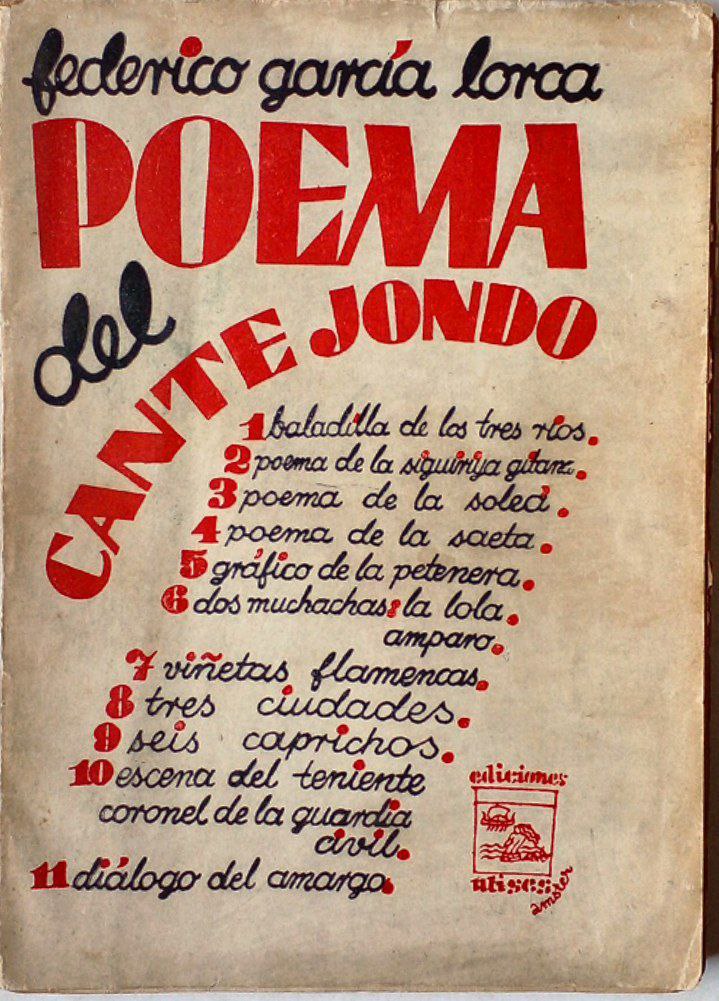 federico garcía lorca
POEMA
del
CANTE JONDO
1 baladilla de los tres ríos.
2 poema de la siguiriya gitana.
3 poema de la soleá.
4 poema de la saeta.
5 gráfico de la petenera.
6 dos muchachas: la lola.
amparo.
7 viñetas flamencas.
8 tres ciudades.
9 seis caprichos.
10 escena del teniente
coronel de la guardia
civil.
11 diálogo del amargo.
ediciones
ulises
amster